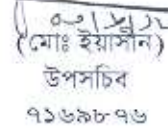 (মোঃ ইয়াসীন)
উপসচিব
৭১৬৯৮৭৬